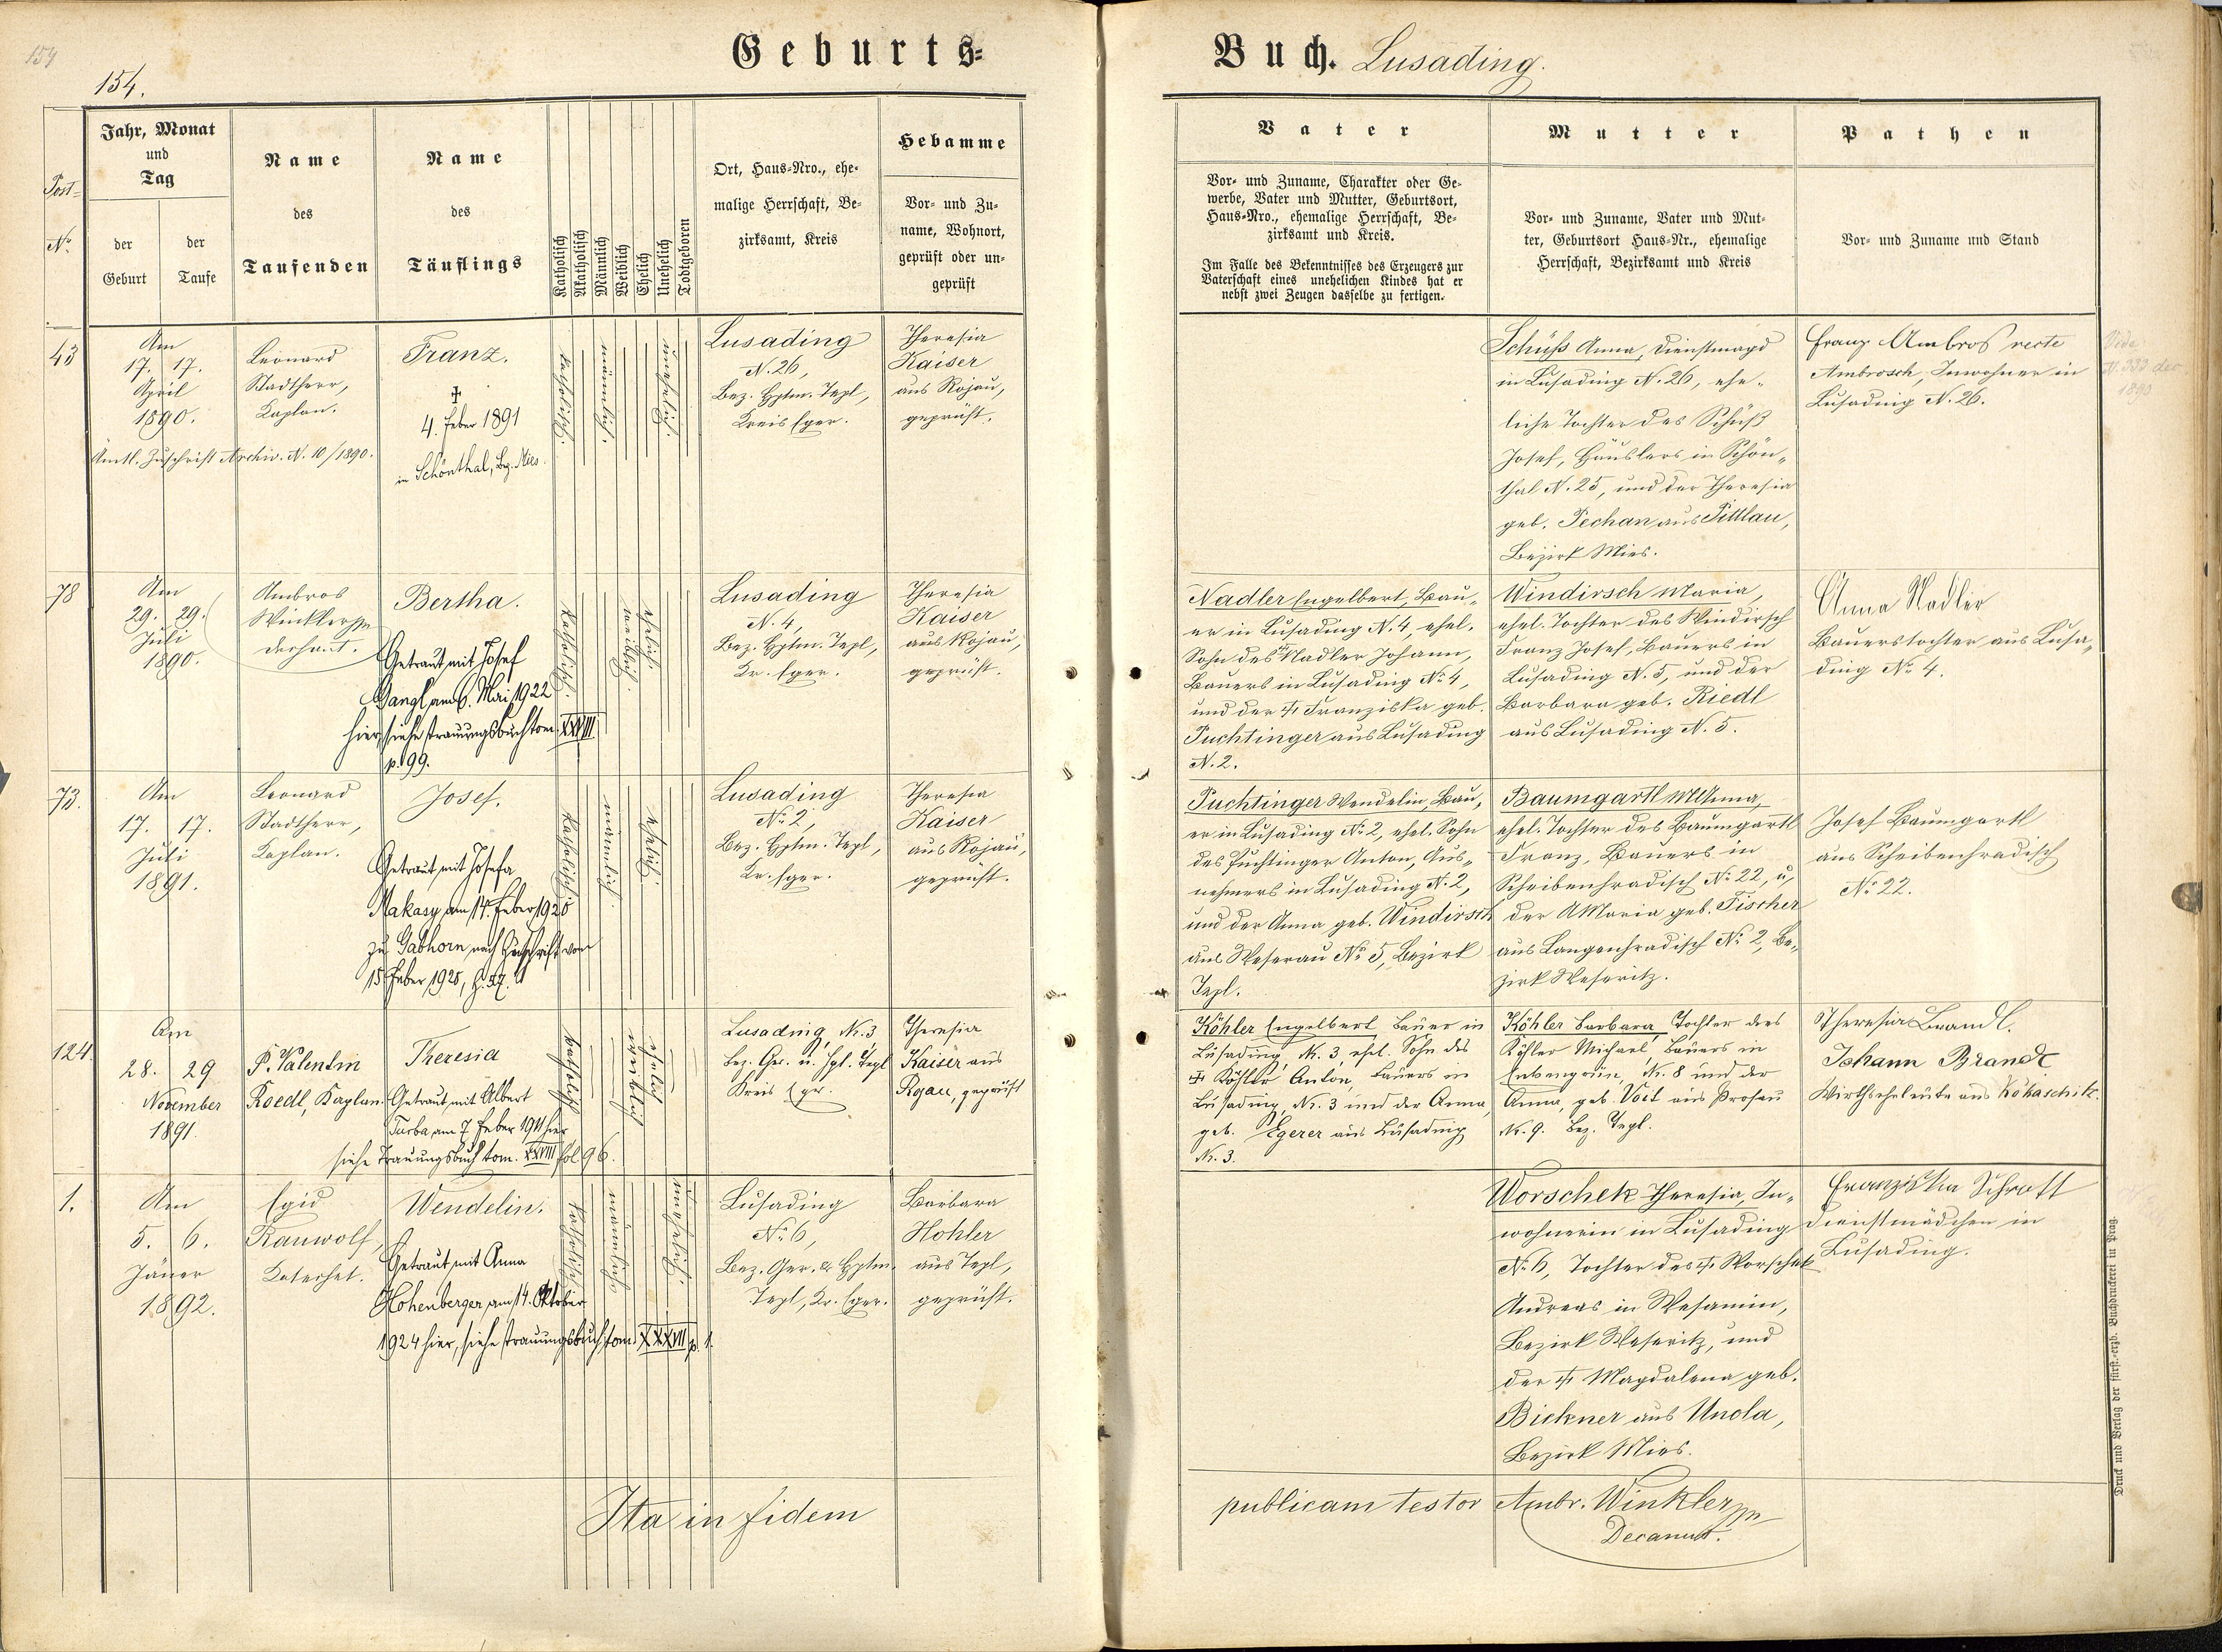 154
154.
Geburts=
Buch. Lusading.
Post=
No.
Jahr, Monat
und
Tag
der
Geburt
der
Taufe
Name
des
Taufenden
Name
des
Täuflings
Katholisch
Akatholisch
Männlich
Weiblich
Ehelich
Unehelich
Todtgeboren
Ort, Haus-Nro., ehe-
malige Herrschaft, Be-
zirksamt, Kreis
Hebamme
Vor- und Zu-
name, Wohnort,
geprüft oder un-
geprüft
Vater
Vor- und Zuname, Charakter oder Ge-
werbe, Vater und Mutter, Geburtsort,
Haus-Nro., ehemalige Herrschaft, Be-
zirksamt und Kreis.
Im Falle des Bekenntnisses des Erzeugers zur
Vaterschaft eines unehelichen Kindes hat er
nebst zwei Zeugen dasselbe zu fertigen.
Mutter
Vor- und Zuname, Vater und Mut-
ter, Geburtsort Haus-Nr., ehemalige
Herrschaft, Bezirksamt und Kreis
Pathen
Vor- und Zuname und Stand
43
Am
17. 17.
April
1890.
Ämtl. Zuschrift Archiv. N. 10/1890.
Leonard
Stadtherr,
Kaplan.
Franz.
‡
4. Feber 1891
in Schönthal, Bez. Mies.
katholisch.
männlich.
unehelich.
Lusading
N. 26,
Bez. Hptm. Tepl,
Kreis Eger.
Theresia
Kaiser
aus Rojau,
geprüft.
Schüß Anna, Dienstmagd
in Lusading N. 26, ehe-
liche Tochter des Schüß
Josef, Häuslers in Schön-
thal N. 25, und der Theresia
geb. Pechan aus Pittlau,
Bezirk Mies.
Franz Ambros recte
Ambrosch, Inwohner in
Lusading N. 26.
Vide
N. 333 de
1890
78
Am
29. 29.
Juli
1890.
Ambros
Winkler
Dechant.
Bertha.
Getraut mit Josef
Dangl am 6. Mai 1922
hier, siehe Trauungsbuch tom. XXVIII
p. 99.
katholisch.
weiblich.
ehelich.
Lusading
N. 4,
Bez. Hptm. Tepl,
Kr. Eger.
Theresia
Kaiser
aus Rojau,
geprüft.
Nadler Engelbert, Bau-
er in Lusading N. 4, ehel.
Sohn des ‡ Nadler Johann,
Bauers in Lusading No 4,
und der ‡ Franziska geb.
Puchtinger aus Lusading
N. 2.
Windirsch Maria,
ehel. Tochter des Windirsch
Franz Josef, Bauers in
Lusading N. 5, und der
Barbara geb. Riedl
aus Lusading N. 5.
Anna Nadler
Bauerstochter aus Lusa-
ding No 4.
73.
Am
17. 17.
Juli
1891.
Leonard
Stadtherr,
Kaplan.
Josef.
Getraut mit Josefa
Makasy am 14. Feber 1920
zu Gabhorn nach Zuschrift vom
15. Feber 1920,
katholisch.
männlich.
ehelich.
Lusading
No 2,
Bez. Hptm. Tepl,
Kr. Eger.
Theresia
Kaiser
aus Rojau,
geprüft.
Puchtinger Wendelin, Bau-
er in Lusading No 2, ehel. Sohn
des Puchtinger Anton, Aus-
nehmers in Lusading N. 2,
und der Anna geb. Windirsch
aus Weserau No 5, Bezirk
Tepl.
Baumgartl M. Anna,
ehel. Tochter des Baumgartl
Franz, Bauers in
Scheibenhradisch No 22, u.
der A. Maria geb. Fischer
aus Langenhradisch No 2, Be-
zirk Weseritz.
Josef Baumgartl
aus Scheibenhradisch
No 22.
124.
Am
28. 29
November
1891.
P. Valentin
Roedl, Kaplan.
Theresia
Getraut mit Albert
Turba am 7. Feber 1911 hier
siehe Trauungsbuch tom. XXVIII fol. 96.
katholisch
weiblich
ehelich
Lusading, Nr. 3
Bez. Ger. u. Hpt. Tepl
Kreis Eger.
Theresia
Kaiser aus
Rojau, geprüft
Köhler Engelbert, Bauer in
Lusading, Nr. 3, ehel. Sohn des
‡ Köhler Anton, Bauers in
Lusading, Nr. 3 und der Anna,
geb. Egerer aus Lusading
Nr. 3.
Köhler Barbara, Tochter des
Köhler Michael, Bauers in
Nr. 8 und der
Anna, geb. Voit aus Prosau
Nr. 9. Bez. Tepl.
Theresia Brandl.
Johann Brandl
Wirthseheleute aus Kokaschik.
1.
Am
5. 6.
Jäner
1892.
Egid
Rauwolf,
Katechet.
Wendelin.
Getraut mit Anna
Hohenberger am 14. Oktober
1924 hier, siehe Trauungsbuch tom. XXXVII p. 1.
katholisch.
männlich.
unehelich.
Lusading
No 6,
Bez. Ger. & Hptm.
Tepl, Kr. Eger.
Barbara
Hohler
aus Tepl,
geprüft.
Worschek Theresia, In-
wohnerin in Lusading
No 6, Tochter des ‡ Worschek
Andreas in Wesamin,
Bezirk Weseritz, und
der ‡ Magdalena geb.
Bickner aus Unola,
Bezirk Mies.
Franziska Schrott
Dienstmädchen in
Lusading.
Ita in fidem
publicam testor Ambr. Winkler
Decanus.
Druck und Verlag der fürst.-erzb. Buchdruckerei in Prag.